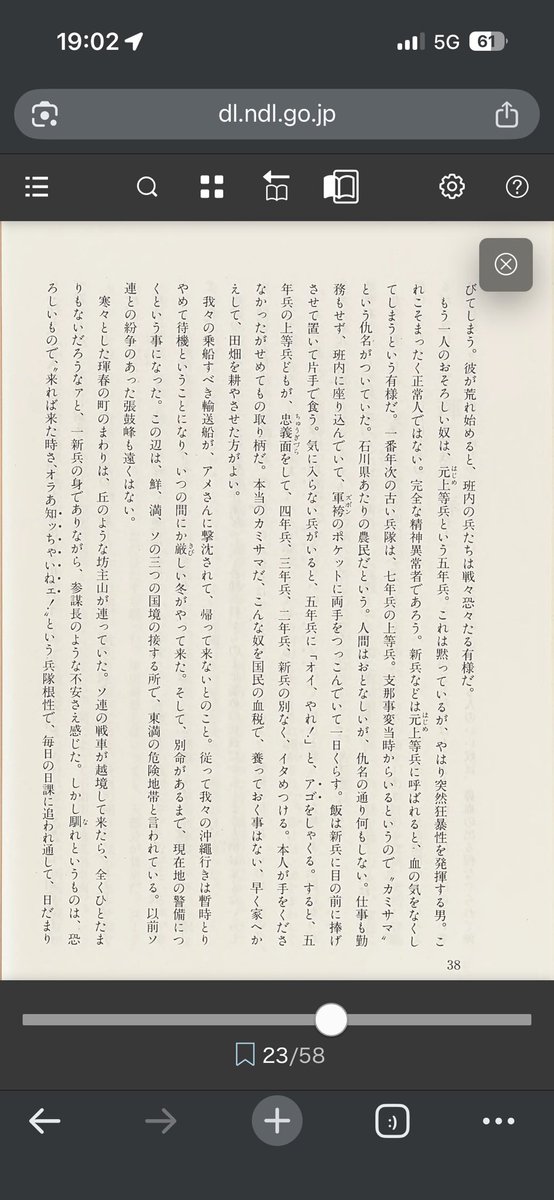 19:02
5G
61
dl.ndl.go.jp
びてしまう。彼が荒れ始めると、班内の兵たちは戦々恐々たる有様だ。
もう一人のおそろしい奴は、元上等兵という五年兵。これは黙っているが、やはり突然狂暴性を発揮する男。こ
れこそまったく正常人ではない。完全な精神異常者であろう。新兵などは元上等兵に呼ばれると、血の気をなくし
てしまうという有様だ。一番年次の古い兵隊は、七年兵の上等兵。支那事変当時からいるというので〝カミサマ〟
という仇名がついていた。石川県あたりの農民だという。人間はおとなしいが、仇名の通り何もしない。仕事も勤
務もせず、班内に座り込んでいて、軍袴のポケットに両手をつっこんでいて一日くらす。飯は新兵に目の前に捧げ
させて置いて片手で食う。気に入らない兵がいると、五年兵に「オイ、やれ!」と、アゴをしゃくる。すると、五
年兵の上等兵どもが、忠義面をして、四年兵、三年兵、二年兵、新兵の別なく、イタめつける。本人が手をくださ
なかったがせめてもの取り柄だ。本当のカミサマだ、こんな奴を国民の血税で、養っておく事はない、早く家へか
えして、田畑を耕やさせた方がよい。
我々の乗船すべき輸送船が、アメさんに撃沈されて、帰って来ないとのこと。従って我々の沖縄行きは暫時とり
やめて待機ということになり、いつの間にか厳しい冬がやって来た。そして、別命があるまで、現在地の警備につ
くという事になった。この辺は、鮮、満、ソの三つの国境の接する所で、東満の危険地帯と言われている。以前ソ
連との紛争のあった張鼓峰も遠くはない。
寒々とした琿春の町のまわりは、丘のような坊主山が連っていた。ソ連の戦車が越境して来たら、全くひとたま
りもないだろうなァと、一新兵の身でありながら、参謀長のような不安さえ感じた。しかし馴れというものは、恐
ろしいもので、〝来れば来た時さ、オラあ知ッちゃいねェ!〟という兵隊根性で、毎日の日課に追われ通して、日だまり
38
23/58